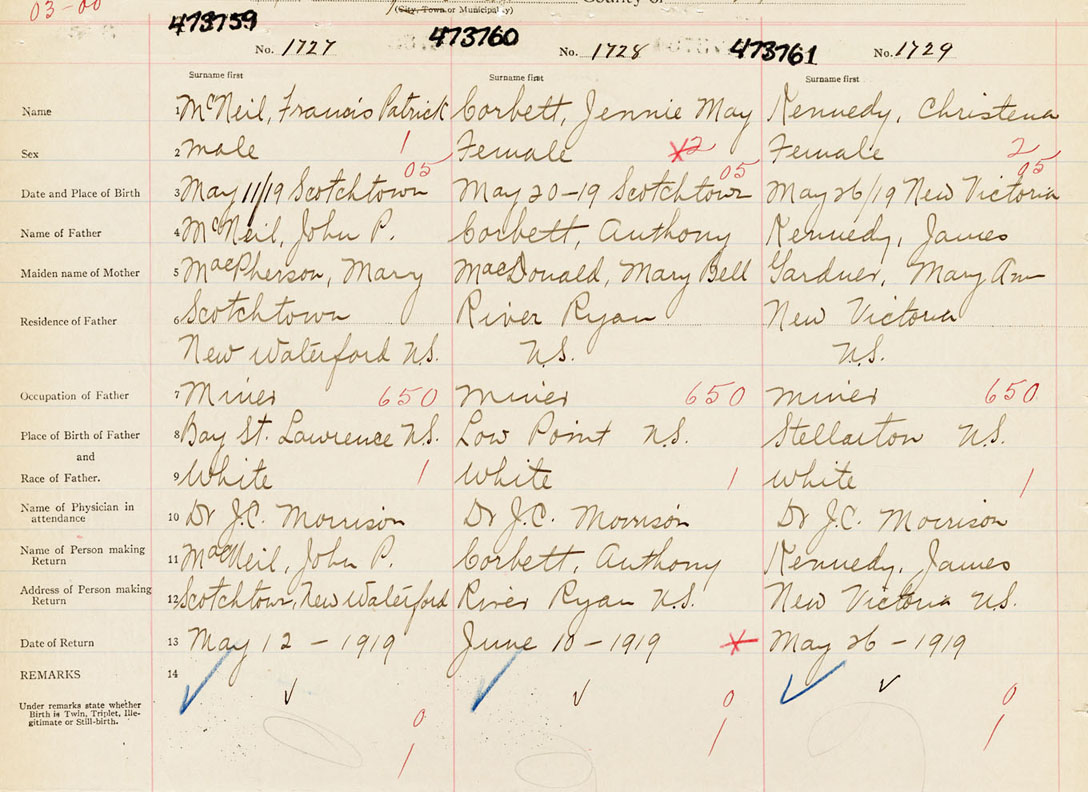 03-00
(City, Town or Municipality) County of
473759 473760 473761
No. 1727 No. 1728 No. 1729
Surname first Surname first Surname first
Name 1 McNeil, Francis Patrick Corbett, Jennie May Kennedy, Christena
Sex 2 male 1 Female 2 Female 2
05 05 05
Date and Place of Birth 3 May 11/19 Scotchtown May 20-19 Scotchtown May 26/19 New Victoria
Name of Father 4 McNeil, John P. Corbett, Anthony Kennedy, James
Maiden name of Mother 5 MacPherson, Mary MacDonald, Mary Bell Gardner, Mary Ann
Residence of Father 6 Scotchtown River Ryan New Victoria
New Waterford N.S. N.S. N.S.
Occupation of Father 7 Miner 650 Miner 650 Miner 650
Place of Birth of Father 8 Bay St. Lawrence N.S. Low Point N.S. Stellarton N.S.
and
Race of Father. 9 White 1 White 1 White 1
Name of Physician in
attendance 10 Dr J.C. Morrison Dr J.C. Morrison Dr J.C. Morrison
Name of Person making
Return 11 MacNeil, John P. Corbett, Anthony Kennedy, James
Address of Person making
Return 12 Scotchtown, New Waterford River Ryan N.S. New Victoria N.S.
Date of Return 13 May 12 - 1919 June 10 - 1919 May 26 - 1919
REMARKS 14
Under remarks state whether
Birth is Twin, Triplet, Ille-
gitimate or Still-birth.
0 0 0
1 1 1